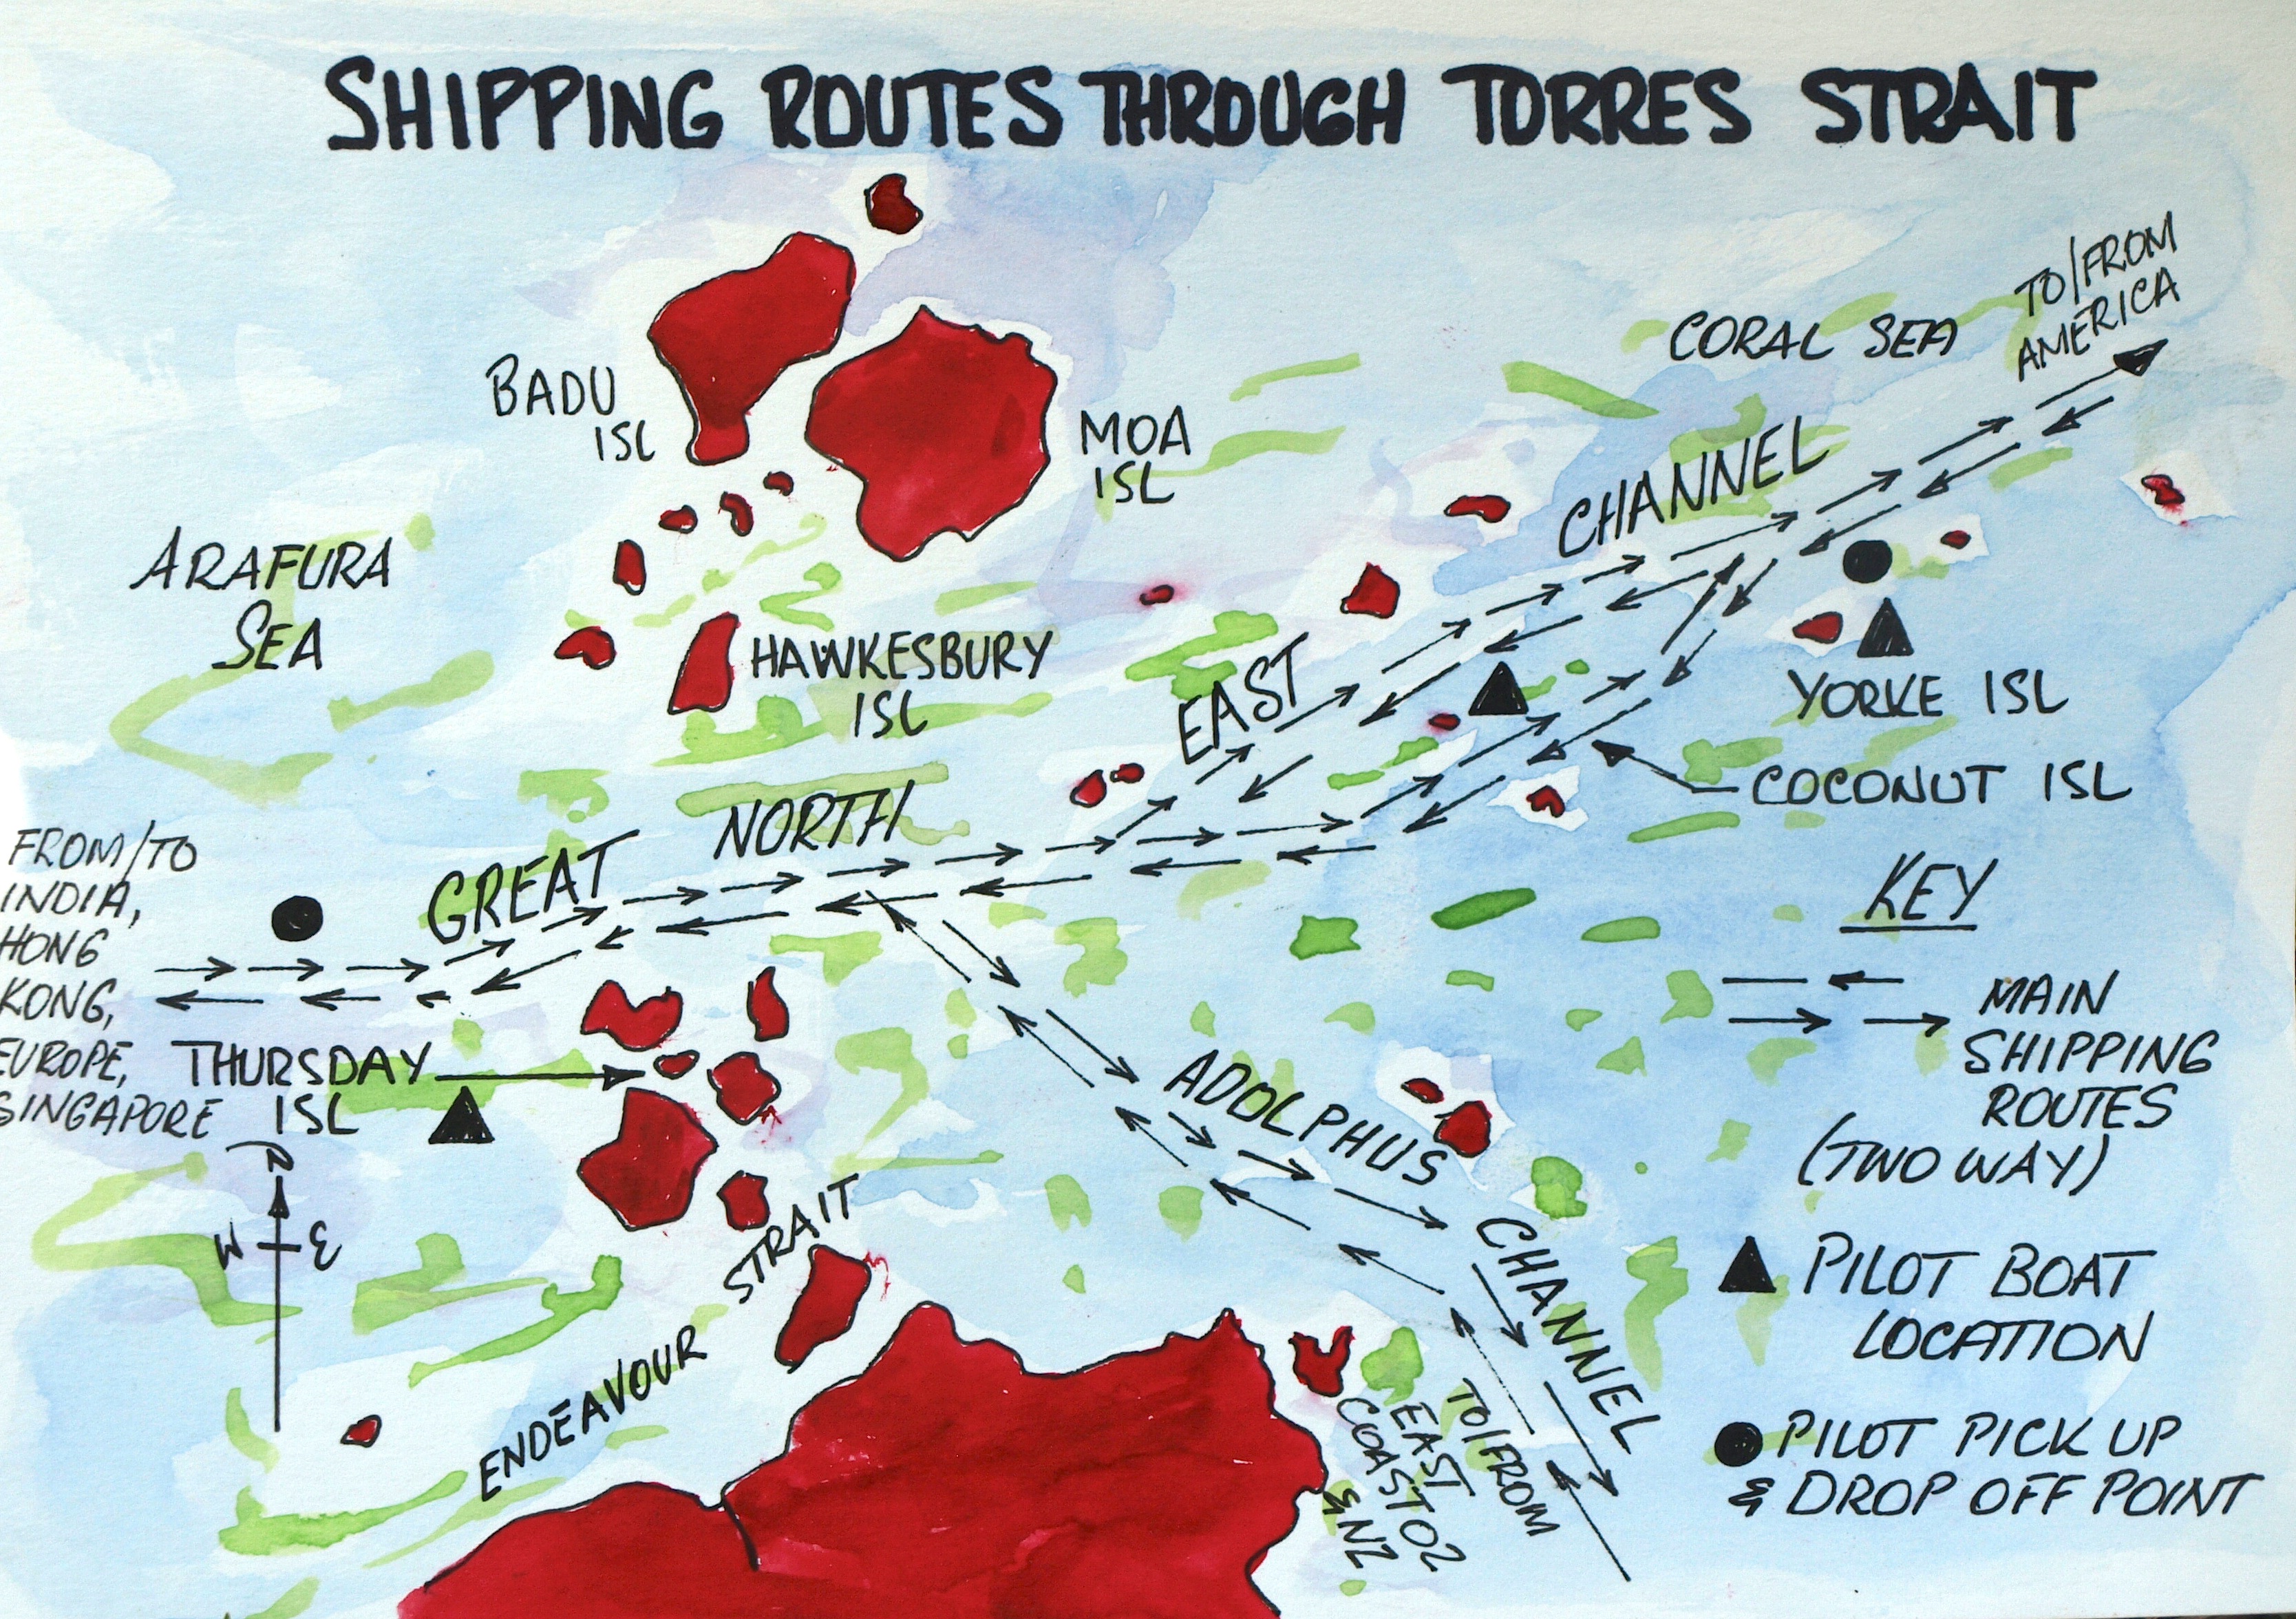 SHIPPING ROUTES THROUGH TORRES STRAIT
TO/FROM
AMERICA
CORAL SEA
BADU
ISL
MOA
ISL
ARAFURA
SEA
HAWKESBURY
ISL
GREAT NORTH EAST CHANNEL
YORKE ISL
COCONUT ISL
FROM/TO
INDIA,
HONG
KONG,
EUROPE,
SINGAPORE
THURSDAY
ISL
N
W E
ADOLPHUS CHANNEL
ENDEAVOUR STRAIT
TO/FROM
EAST
COAST OZ
& NZ
KEY
MAIN
SHIPPING
ROUTES
(TWO WAY)
PILOT BOAT
LOCATION
PILOT PICK UP
& DROP OFF POINT